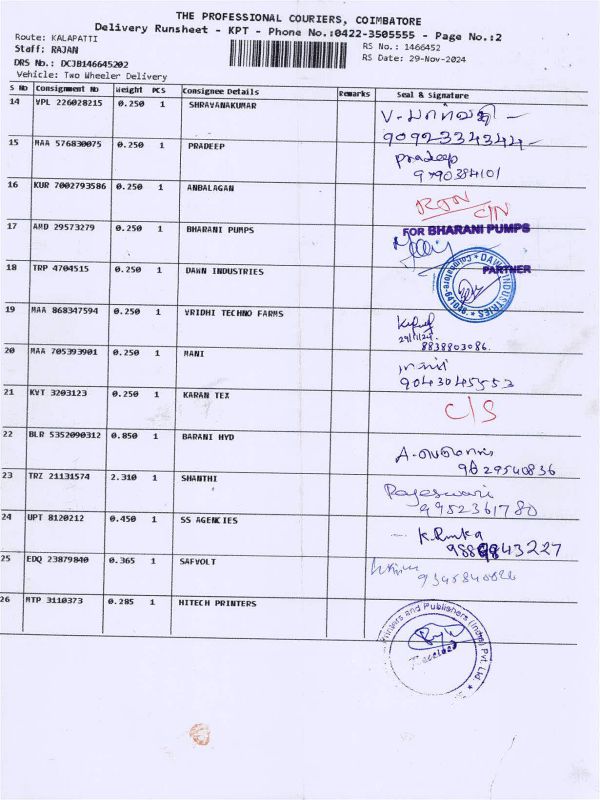 THE PROFESSIONAL COURIERS, COIMBATORE
Delivery Runsheet - KPT - Phone No.:0422-3505555 - Page No.:2
Route: KALAPATTI
RS No.: 1466452
Staff: RAJAN
RS Date: 29-Nov-2024
DRS No.: DCJB146645202
Vehicle: Two Wheeler Delivery
S No Consignment No Weight PCS Consignee Details Remarks Seal & Signature
14 VPL 226028215 0.250 1 SHRAVANAKUMAR
9092334344
15 MAA 576830075 0.250 1 PRADEEP
Pradeep
9790384101
16 KUR 7002793586 0.250 1 ANBALAGAN
RTN
C/N
17 AMD 29573279 0.250 1 BHARANI PUMPS
FOR BHARANI PUMPS
PARTNER
18 TRP 4704515 0.250 1 DAWN INDUSTRIES
DAWN INDUSTRIES
19 MAA 868347594 0.250 1 VRIDHI TECHNO FARMS
29/11/24
8838803086
20 MAA 705393901 0.250 1 MANI
mani
9043045553
21 KVT 3203123 0.250 1 KARAN TEX
C/S
22 BLR 5352090312 0.850 1 BARANI HYD
9629540836
23 TRZ 21131574 2.310 1 SHANTHI
Rajeswari
9952361780
24 UPT 8120212 0.450 1 SS AGENCIES
25 EDQ 23879840 0.365 1 SAFVOLT
26 MTP 3110373 0.285 1 HITECH PRINTERS
Printers and Publishers (India) Pvt. Ltd
Received